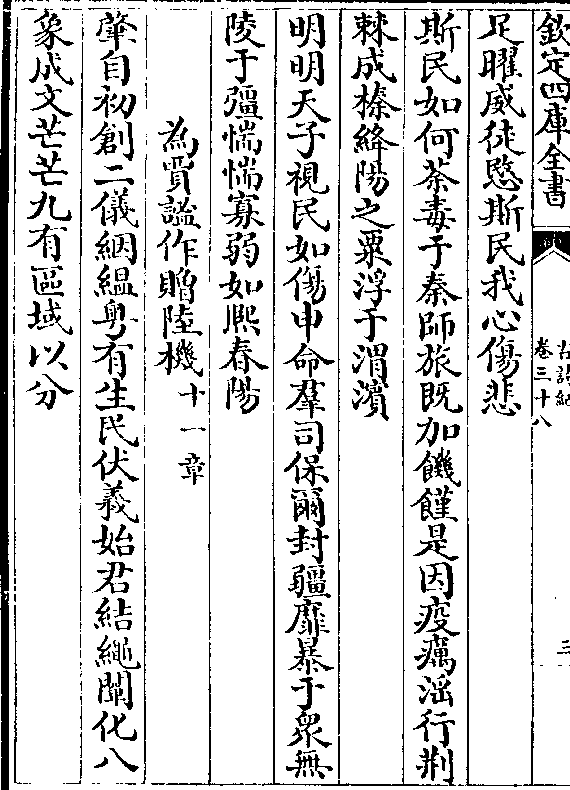 欽定四庫全書
古詩紀
卷三十八
三
足曜威徒愍斯民我心傷悲
斯民如何荼毒于秦師旅既加饑饉是因疫癘淫行荆
棘成榛絳陽之粟浮于渭濱
明明天子視民如傷申命羣司保爾封疆靡暴于衆無
陵于彊惴惴寡弱如熙春陽
為賈謐作贈陸機十一章
肇自初創二儀絪緼粤有生民伏羲始君結繩闡化八
象成文芒芒九有區域以分